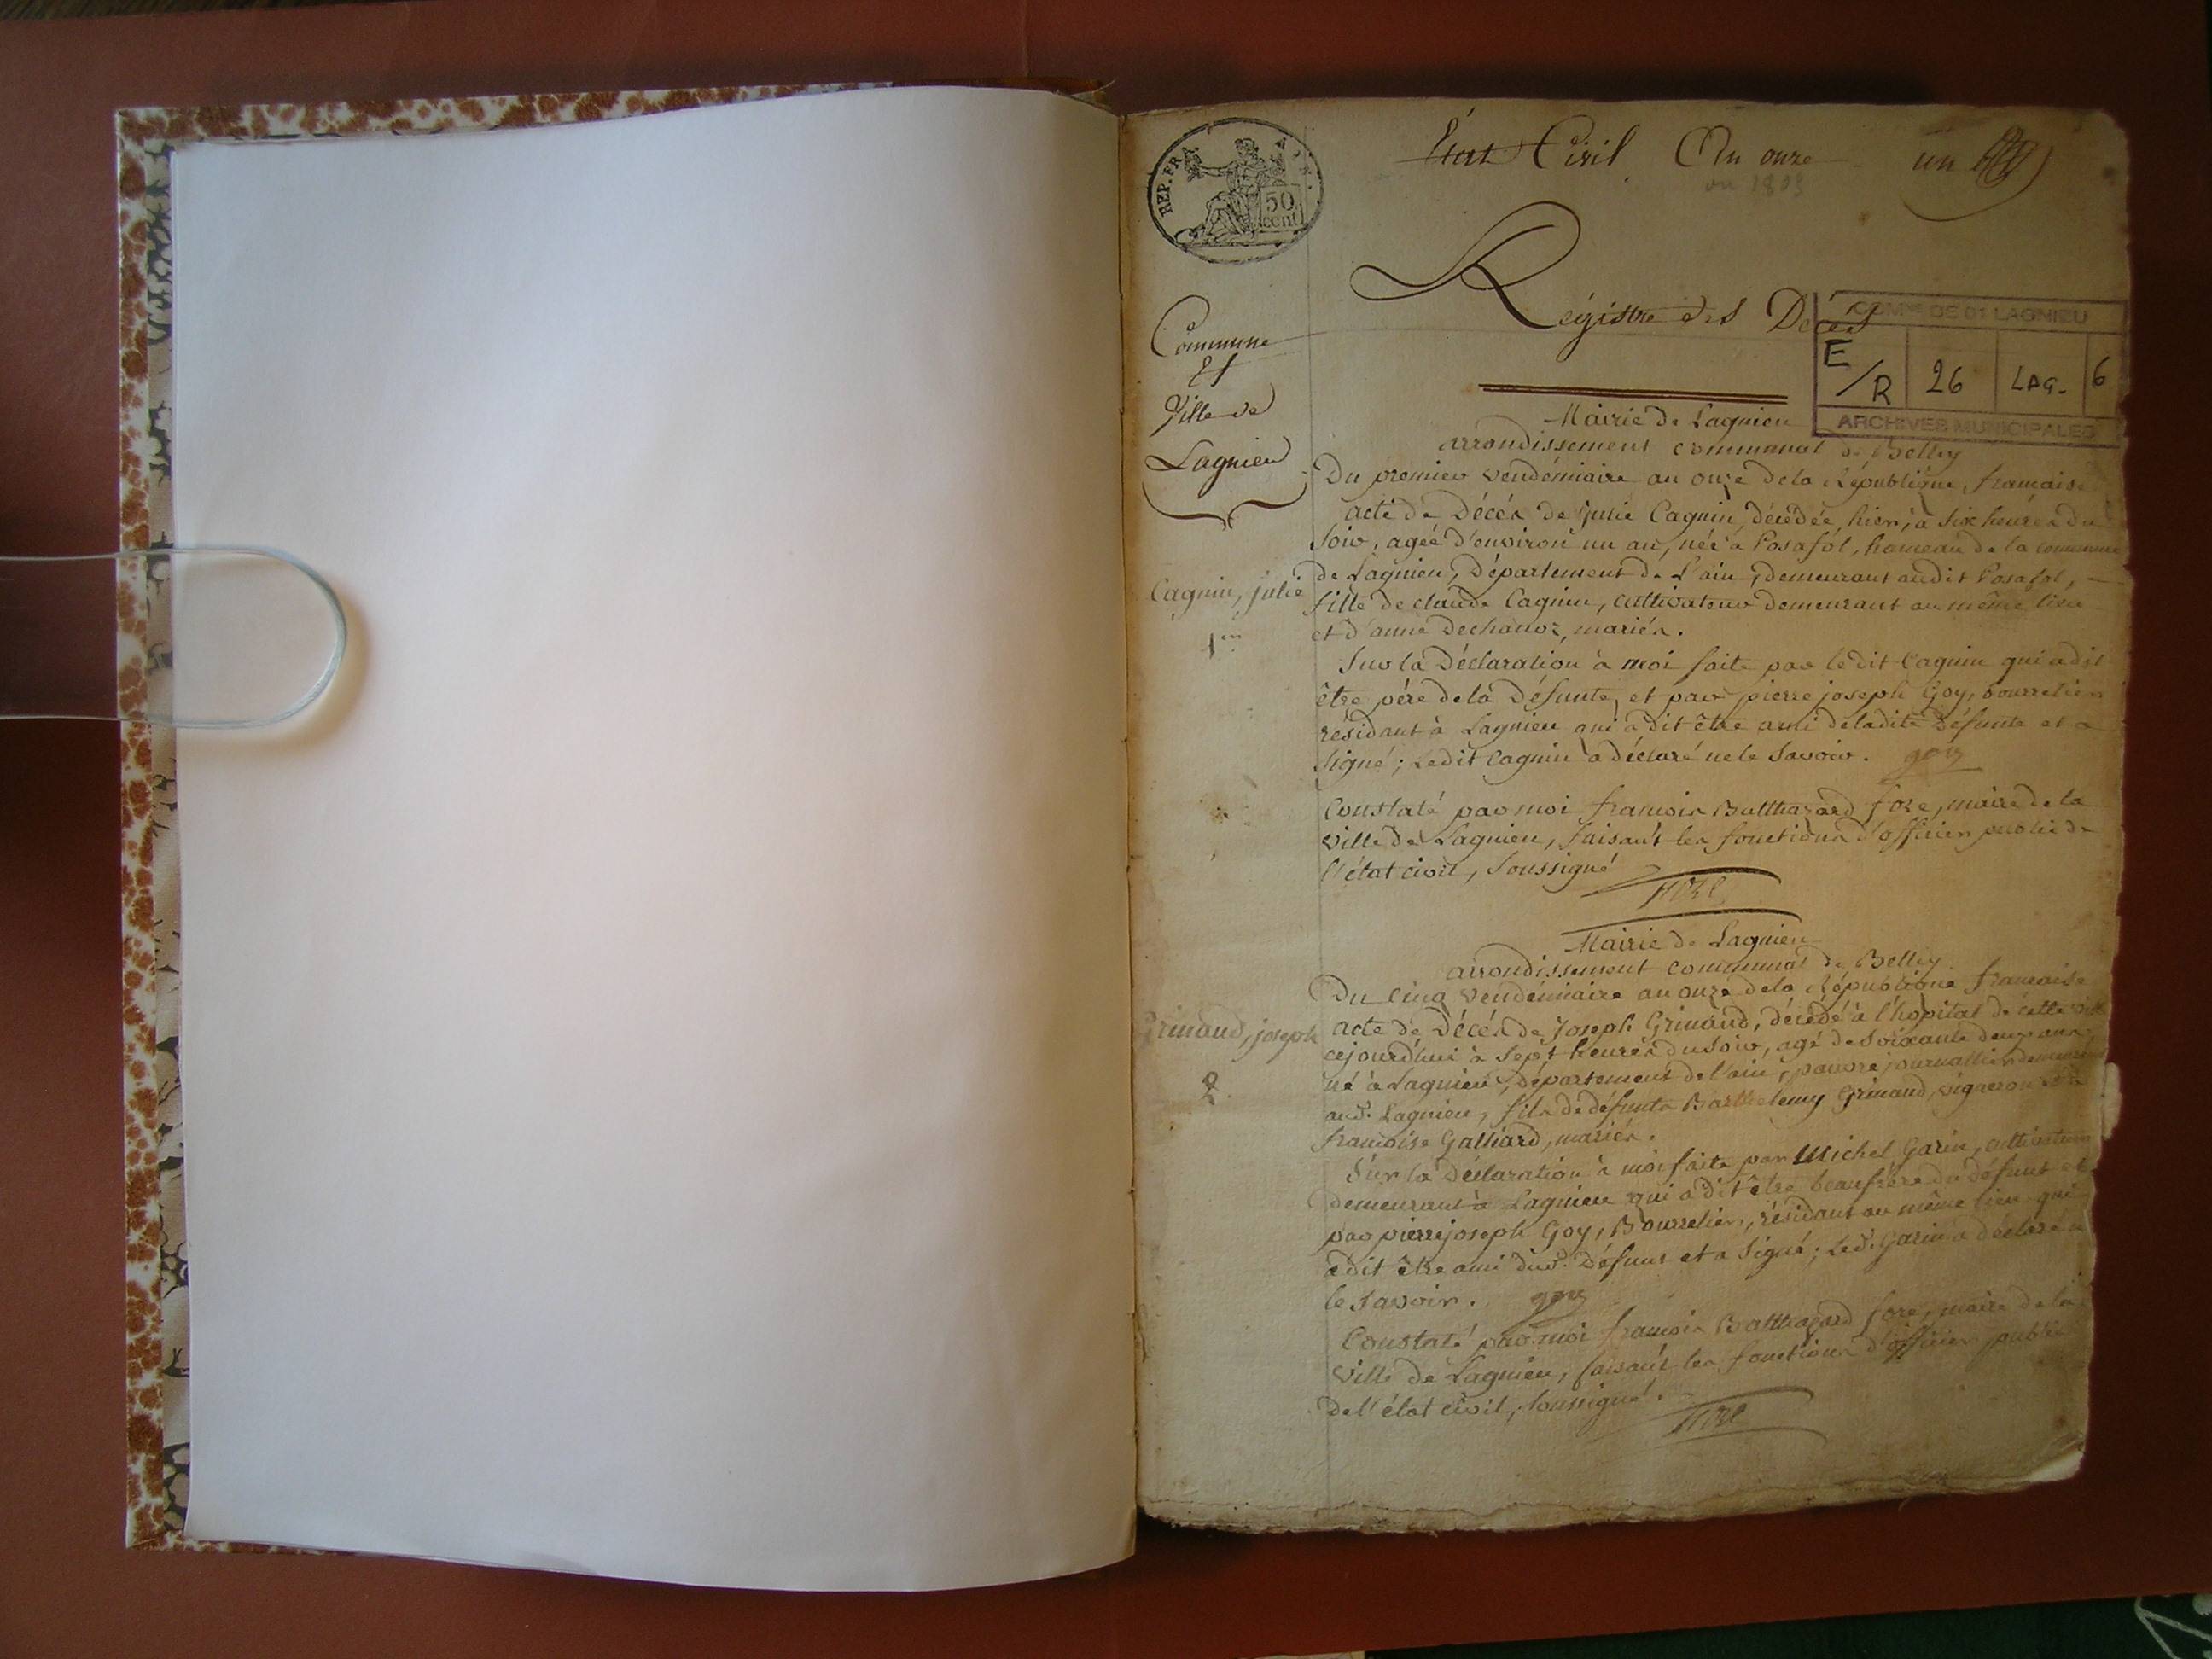 REP. FRA.
50
cent
État Civil An onze
un
an 1803
Régistre des Décès
COMNE DE 01 LAGNIEU
E/R 26 LAG- 6
ARCHIVES MUNICIPALES
Commune
Et
Ville de
Lagnieu
Mairie de Lagnieu
arrondissement communal de Belley
Du premier vendémiaire an onze de la République française
acte de Décès de julie Cagnin, décédée, hier, à six heures du
soir, agée d'environ un an, née à Posafol, hameau de la commune
de Lagnieu, Département de l'ain, demeurant audit Posafol,
fille de claude Cagnin, cultivateur demeurant au même lieu
et d'anne Dechanoz, mariés.
Cagnin, julie
1er
Sur la Déclaration à moi faite par ledit Cagnin qui a dit
être père de la Défunte, et par pierre joseph Goy, bourrelier
résidant à Lagnieu qui a dit être ami deladite Défunte et a
signé; Ledit Cagnin a déclaré ne le savoir. goy
Constaté par moi françois Balthazard fore, maire de la
ville de Lagnieu, faisant les fonctions d'officier public de
l'état civil, soussigné
fore
Mairie de Lagnieu
arrondissement communal de Belley
Du cinq vendémiaire an onze dela République française
acte de Décès de Joseph Grimand, décédé à l'hopital de cette ville
cejourd'hui à sept heures du soir, agé de soixante deux ans,
né à Lagnieu, département de l'ain, pauvre journallier demeurant
aud. Lagnieu, fils de défunts Barthelemy Grimand, vigneron et de
françoise Galliard, mariés.
Grimand, joseph
2
Sur la Déclaration à moi faite par Michel Garin, cultivateur
demeurant à Lagnieu qui a dit être beaufrère du défunt et
par pierre joseph Goy, Bourrelier, résidant au même lieu qui
a dit être ami dud. Défunt et a signé; led. Garin a déclaré ne
le savoir. goy
Constaté par moi françois Balthazard fore, maire de la
ville de Lagnieu, faisant les fonctions d'officier public
de l'état civil, soussigné.
fore